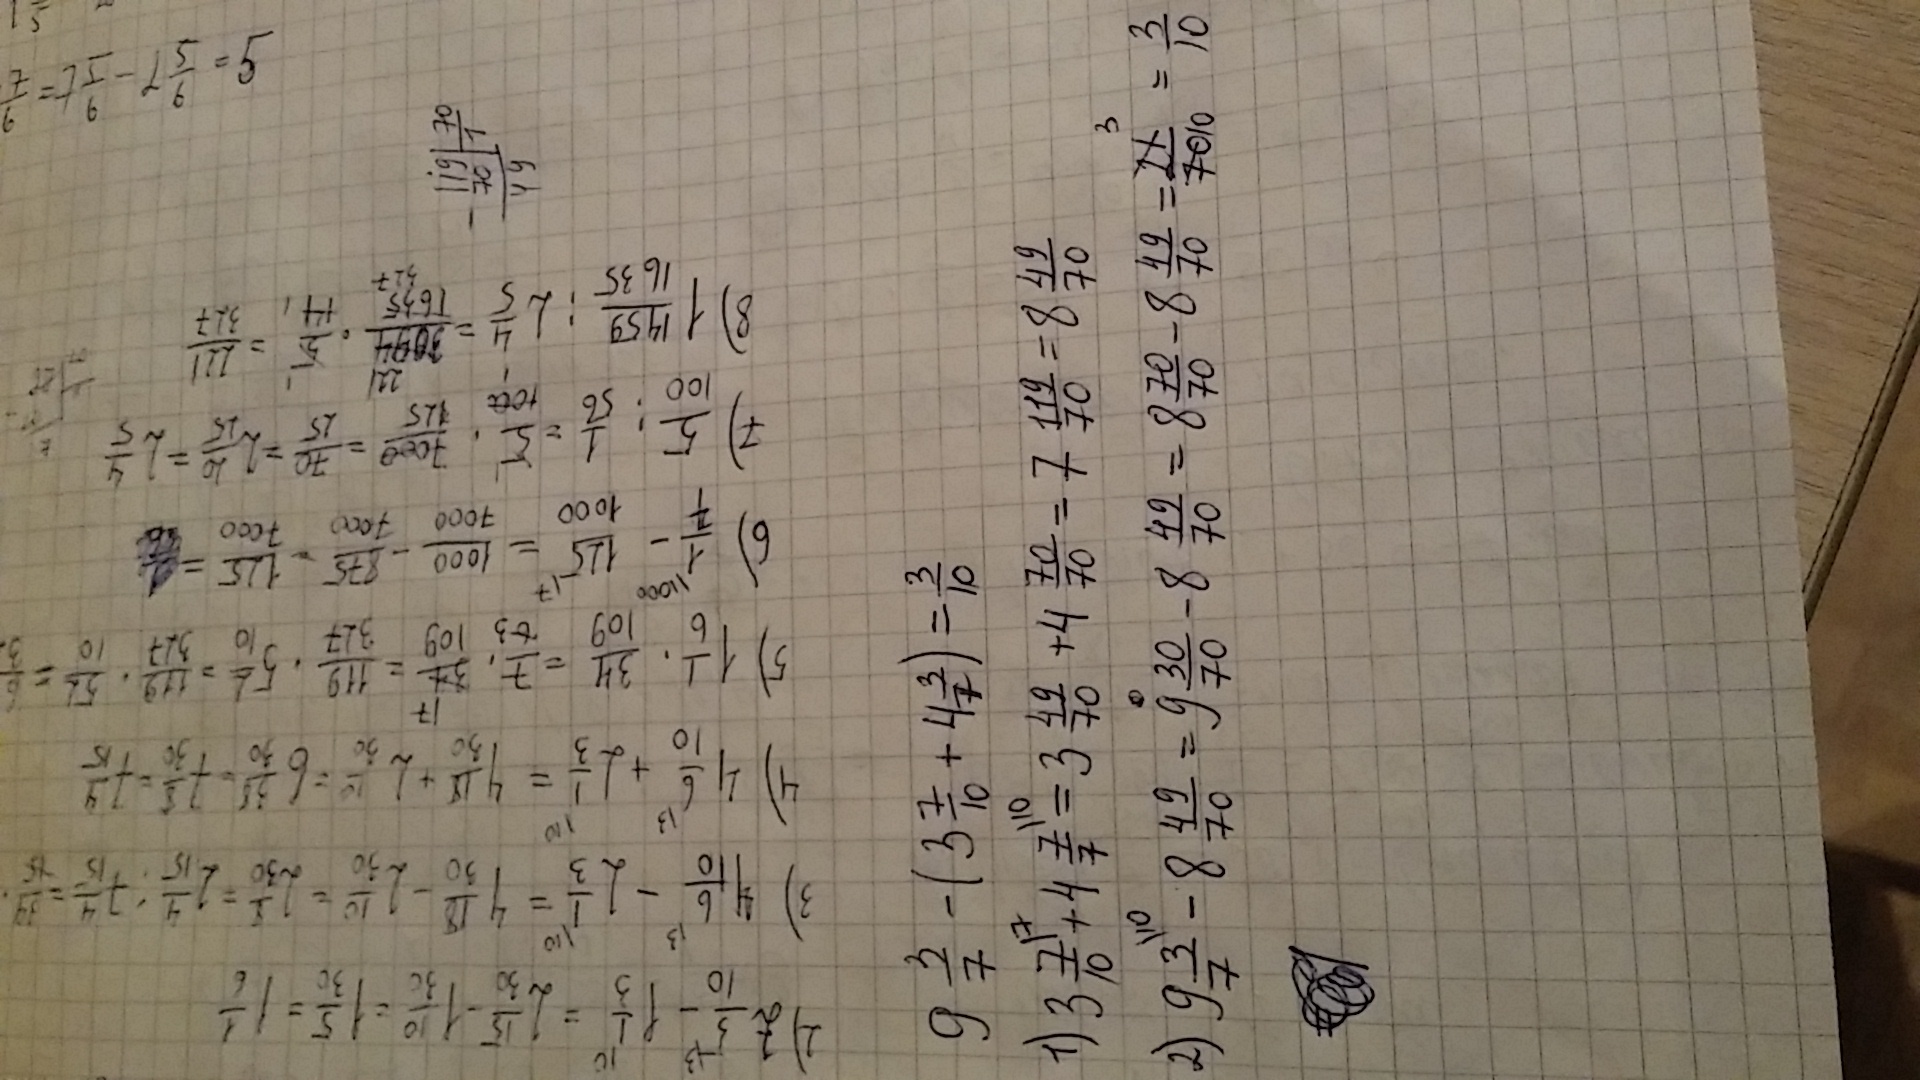 2) 2 3/10 - 1 1/3 = 2 15/30 - 1 10/30 = 1 5/30 = 1 1/6
3) 4 6/10 - 2 1/3 = 4 18/30 - 2 10/30 = 2 8/30 = 2 4/15 : 7 4/15 = 34/15
4) 4 6/10 + 2 1/3 = 4 18/30 + 2 10/30 = 6 38/30 = 7 8/30 = 7 4/15
5) 1 1/6 · 34/109 = 7/6 · 34/109 = 119/327 · 5 2/10 = 119/327 · 52/10 =
6) 1/7 - 125/1000 = 1000/7000 - 875/7000 = 125/7000 =
7) 5/100 : 1/56 = 5/100 · 7000/125 = 70/25 = 2 20/25 = 2 4/5
8) 1 1459/1635 : 2 4/5 = 3094/1635 · 5/14 = 221/327
119 70
70 1
49
9 3/7 - (3 7/10 + 4 3/7) = 3/10
1) 3 7/10 + 4 7/7 = 3 49/70 + 4 70/70 = 7 119/70 = 8 49/70
2) 9 3/7 - 8 49/70 = 9 30/70 - 8 49/70 = 8 70/70 - 8 49/70 = 21/70 = 3/10